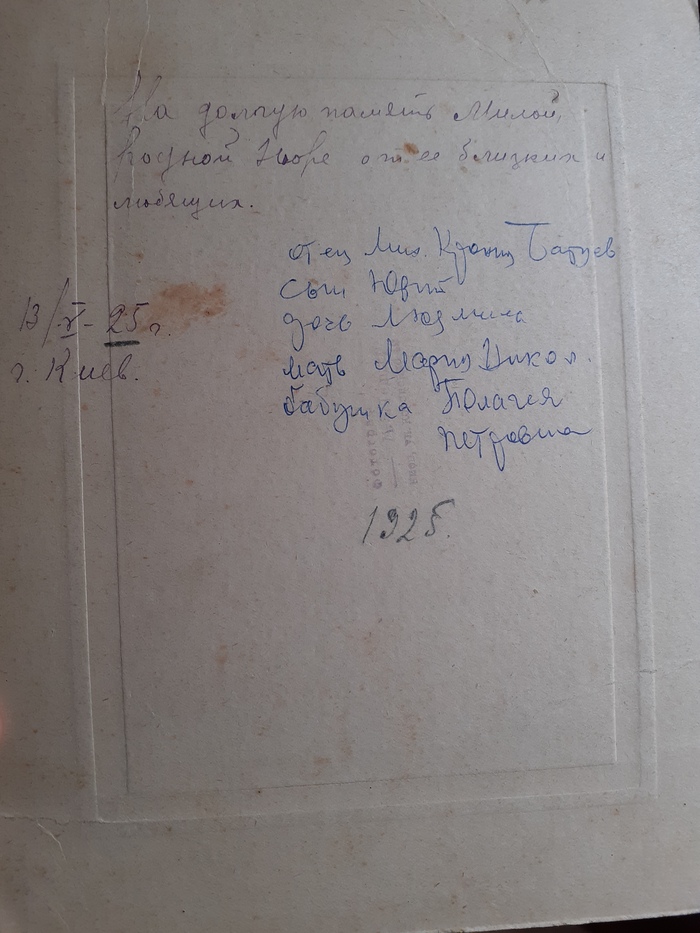 На долгую память Милой,
Родной Нюре от ее близких и
любящих.
отец Мих.
сын Юрий
13/V-25 г.
дочь Людмила
г. Киев.
мать Мария Никол.
бабушка Пелагея
Петровна
1925.